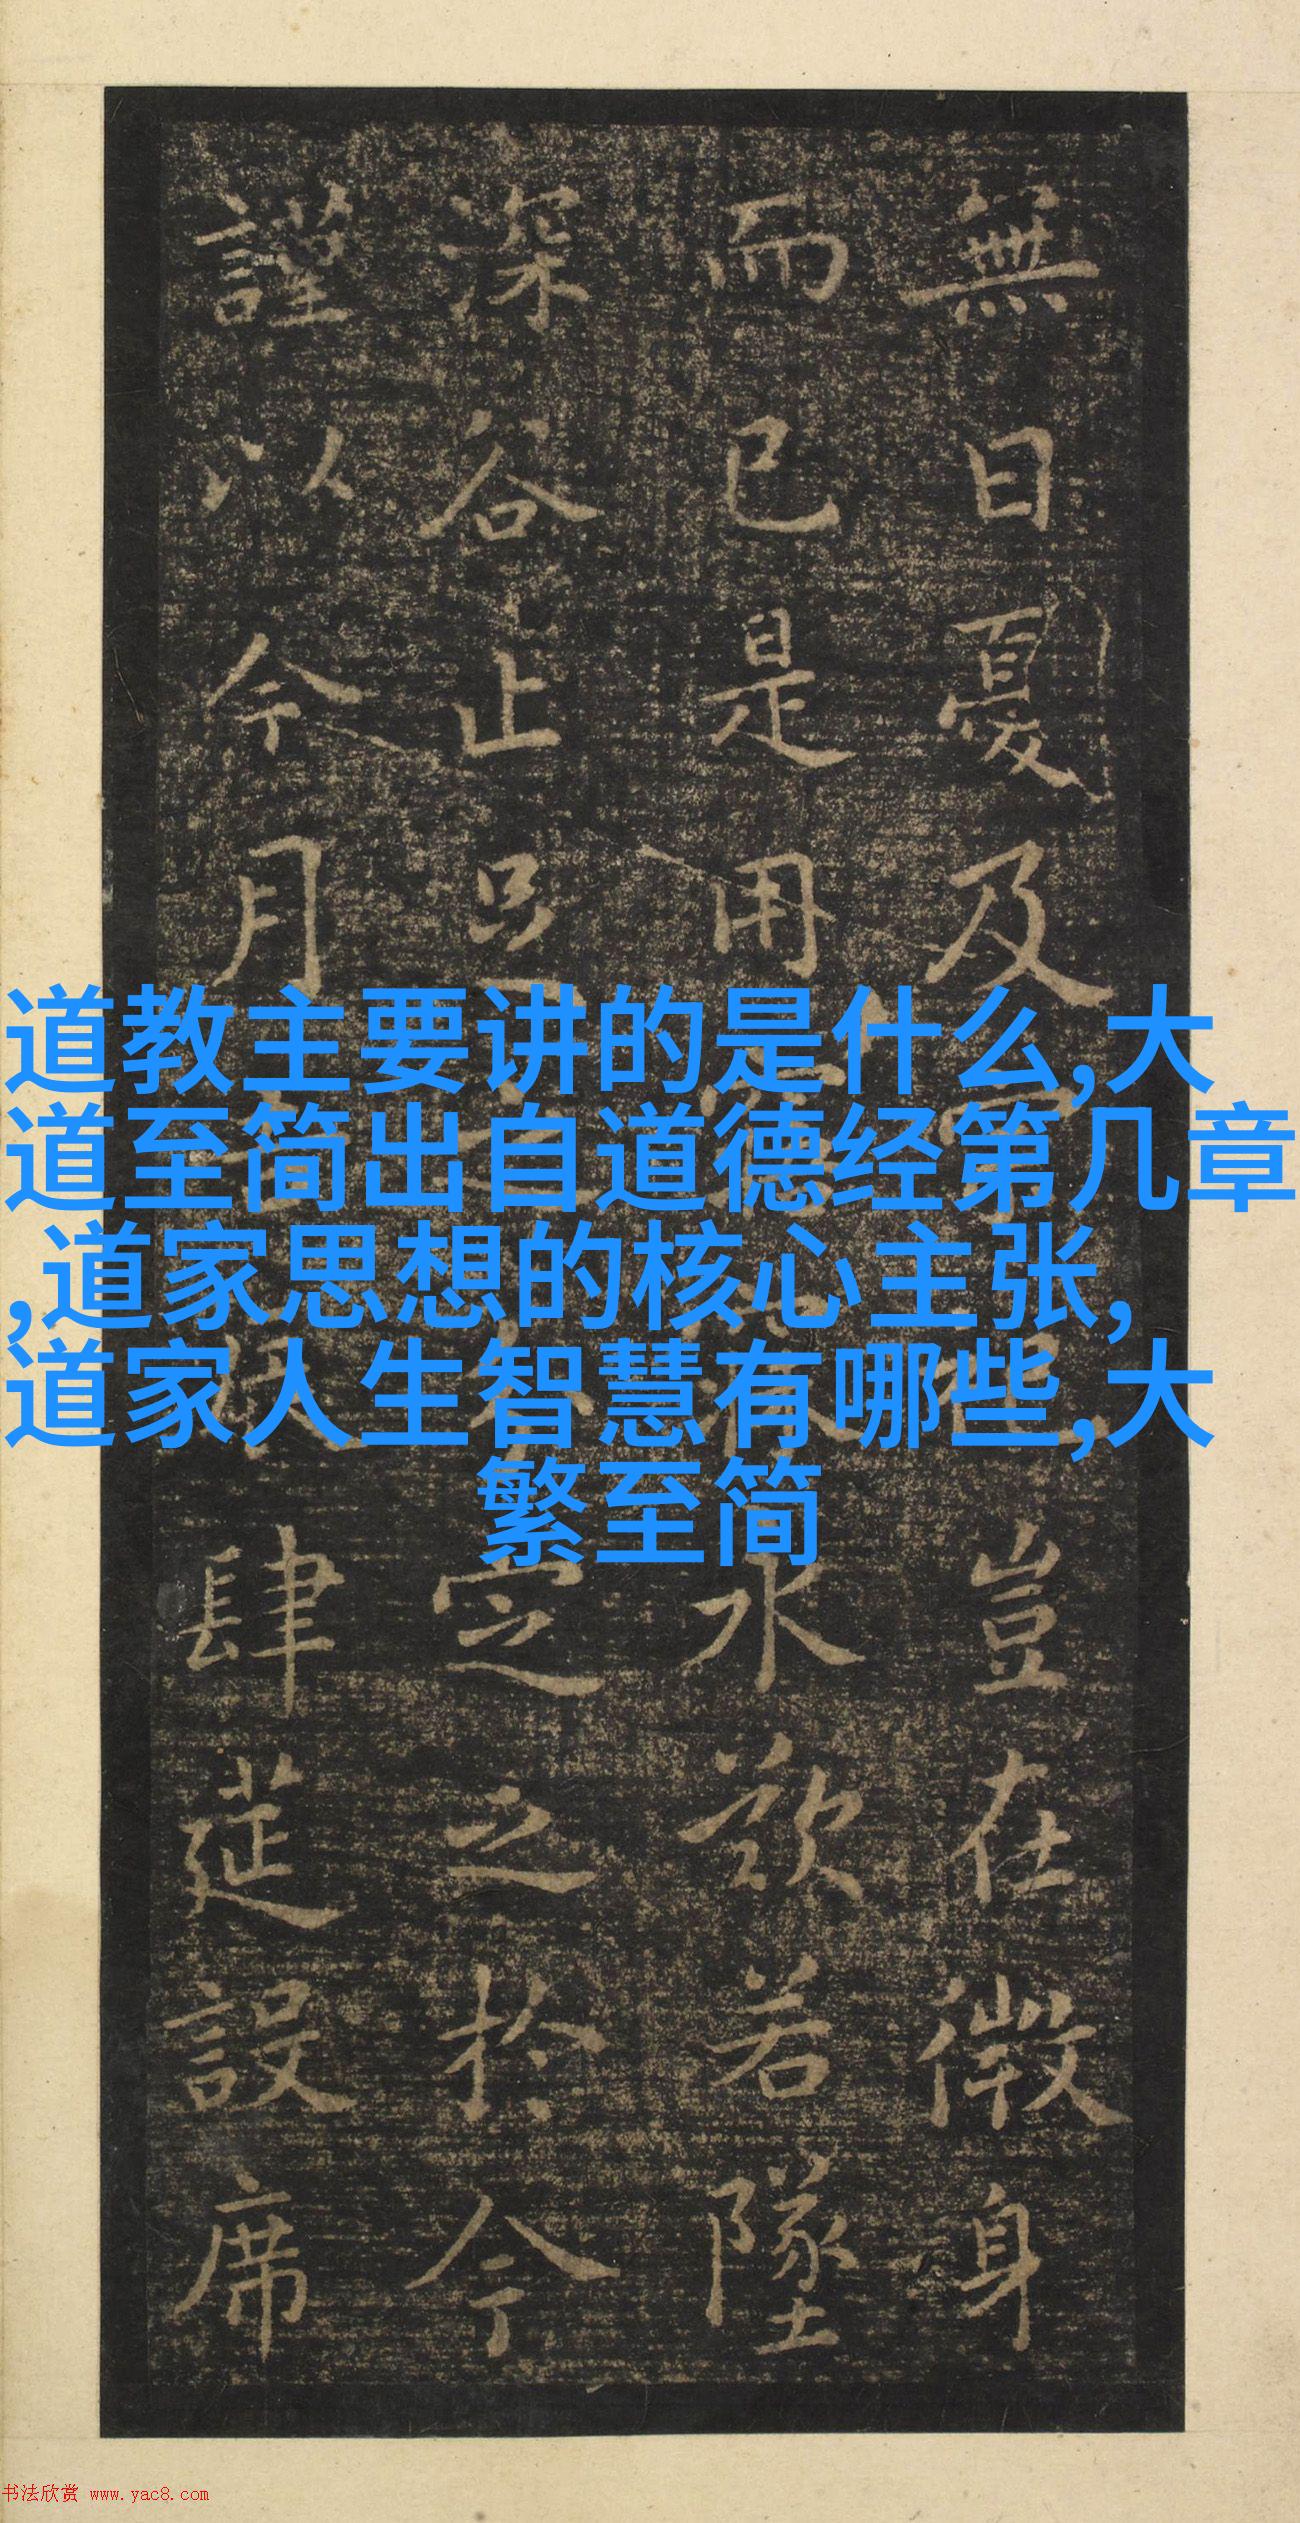 無日憂及豈在微身
而已是用水欲若墜
深谷止定之於今
謹以今月肆莚設席
道教主要讲的是什么,大
道至简出自道德经第几章
,道家思想的核心主张,
道家人生智慧有哪些,大
繁至简
书法欣赏 www.yac8.com